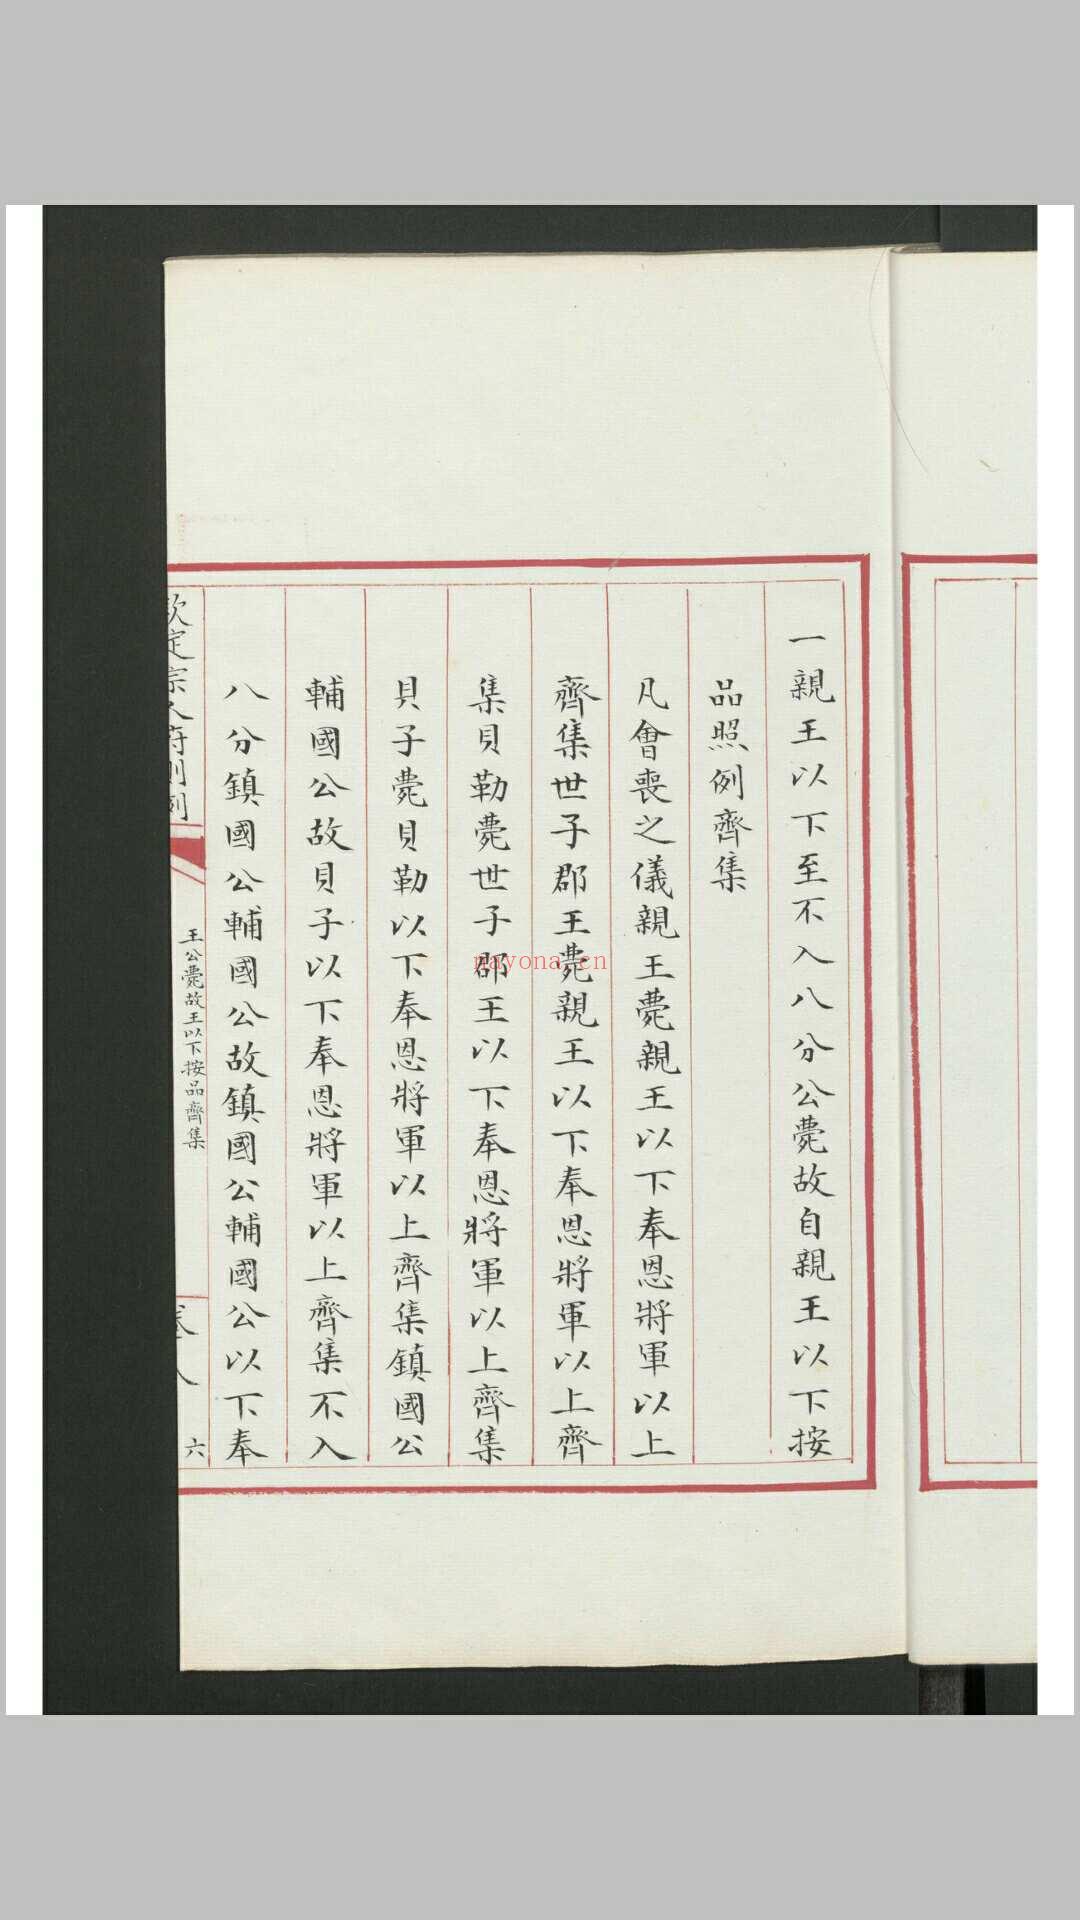 一親王以下至不入八分公薨故自親王以下按
品照例齊集
凡會喪之儀親王薨親王以下奉恩將軍以上
齊集世子郡王薨親王以下奉恩將軍以上齊
集貝勒薨世子郡王以下奉恩將軍以上齊集
貝子薨貝勒以下奉恩將軍以上齊集鎮國公
輔國公故貝子以下奉恩將軍以上齊集不入
八分鎮國公輔國公故鎮國公輔國公以下奉
欽定宗人府則例
王公薨故王以下按品齊集
卷八
六
nayona.cn